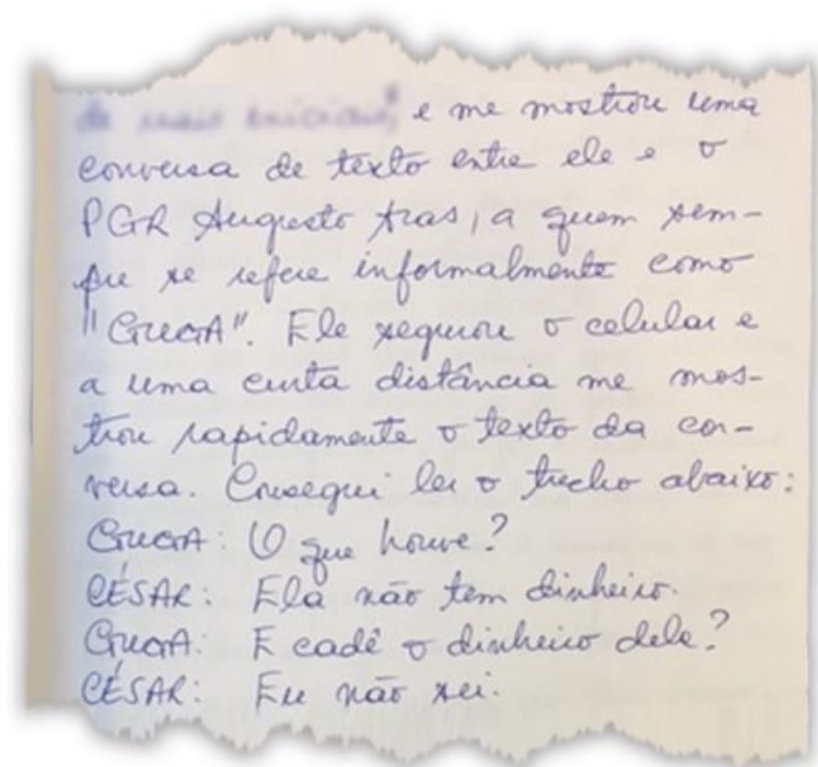 e me mostrou uma
conversa de texto entre ele e o
PGR Augusto Aras, a quem sem-
pre se refere informalmente como
"GUGA". Ele segurou o celular e
a uma curta distância me mos-
trou rapidamente o texto da con-
versa. Consegui ler o trecho abaixo:
GUGA: O que houve?
CÉSAR: Ela não tem dinheiro.
GUGA: E cadê o dinheiro dele?
CÉSAR: Eu não sei.